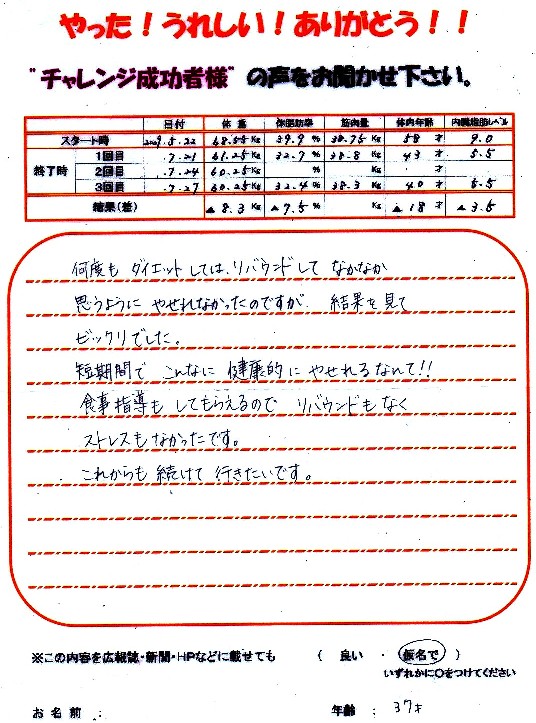 やった！うれしい！ありがとう！！
"チャレンジ成功者様"の声をお聞かせ下さい。
日付 体重 体脂肪率 筋肉量 体内年齢 内臓脂肪レベル
スタート時 68.55Kg 39.9% 38.75Kg 58才 9.0
終了時
1回目 .7.21 61.25Kg 32.7% 38.8Kg 43才 5.5
2回目 .7.24 60.25Kg % Kg 才
3回目 .7.27 60.25Kg 32.4% 38.3Kg 40才 5.5
結果(差) ▲8.3Kg ▲7.5% Kg ▲18才 ▲3.5
何度も ダイエットしては、リバウンドして なかなか
思うように やせれなかったのですが 結果を見て
ビックリでした。
短期間で こんなに 健康的に やせれるなんて!!
食事指導も してもらえるので リバウンドもなく
ストレスもなかったです。
これからも 続けて 行きたいです。
※この内容を広報誌・新聞・HPなどに載せても （ 良い ・ 仮名で ）
いずれかに○をつけてください
お名前 :
年齢 : 37才